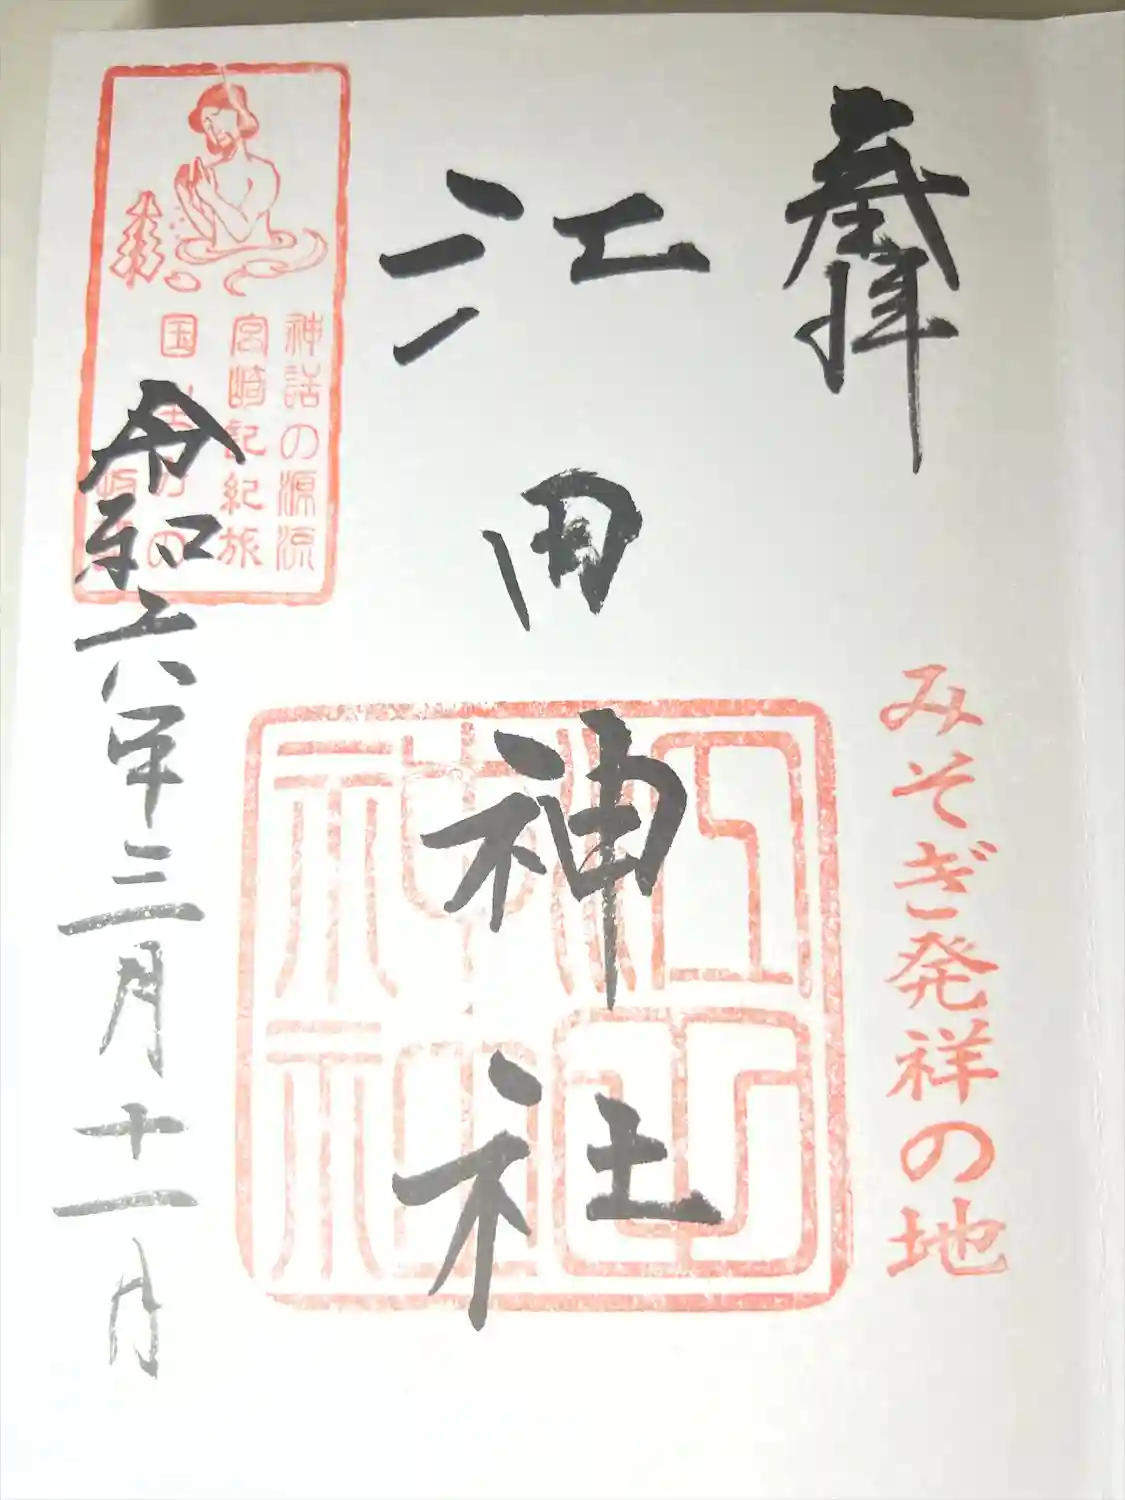 奉拝
みそぎ発祥の地
江田神社
神話の源流
宮崎記紀旅
国
の
令和六年三月十一日